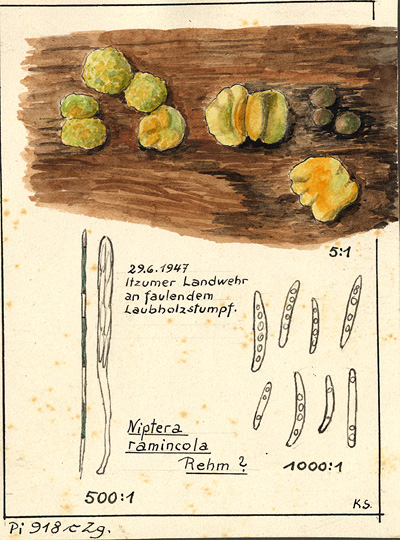 5:1
29.6.1947
Itzumer Landwehr
an faulendem
Laubholzstumpf.
Niptera
ramincola
Rehm ?
500:1
1000:1
K.S.
Pi 918 c Zg.